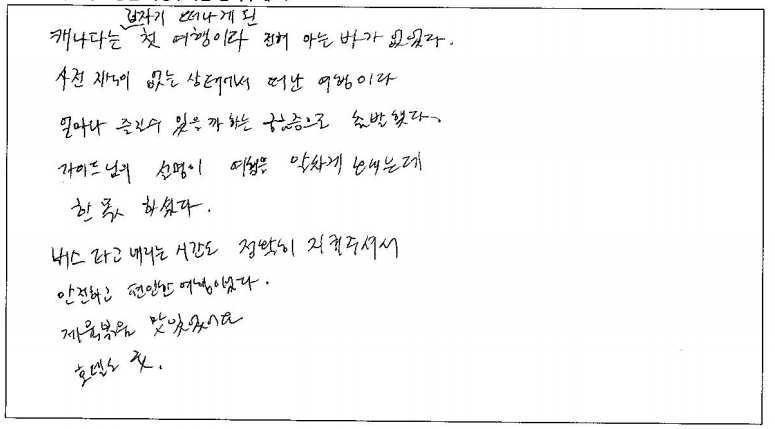 갑자기 떠나게 된
캐나다는 첫 여행이라 전혀 아는 바가 없었다.
사전 지식이 없는 상태에서 떠난 여행이라
얼마나 즐길수 있을까 하는 궁금증으로 출발했다.
가이드님의 설명이 여행을 알차게 보내는데
한 몫 하셨다.
버스 타고 내리는 시간도 정확히 지켜주셔서
안전하고 편안한 여행이었다.
제육볶음 맛있었어요
호텔도 굿.